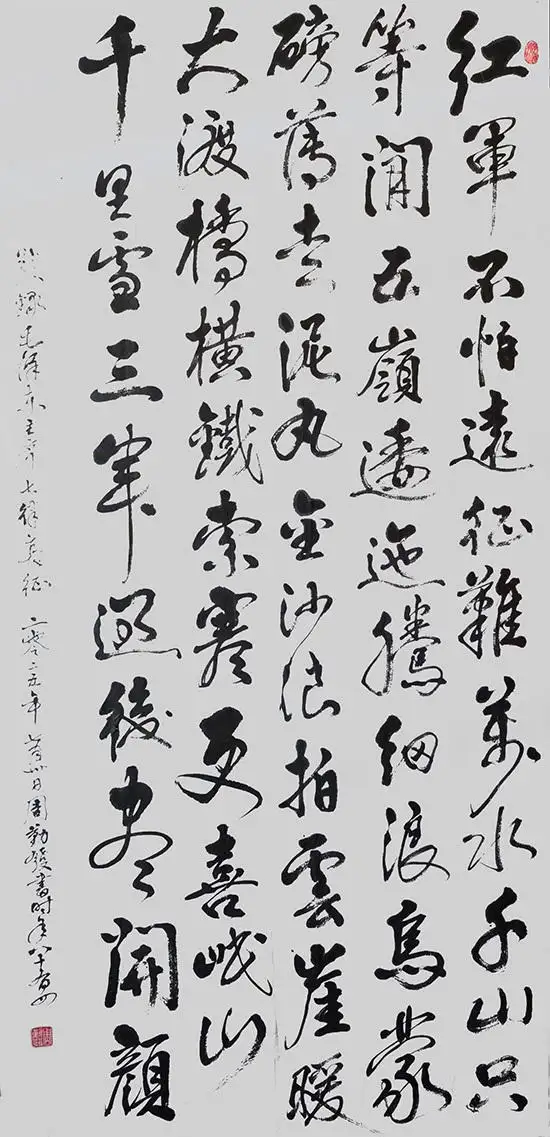 紅軍不怕遠征難萬水千山只
等閒五嶺逶迤騰細浪烏蒙
磅礴走泥丸金沙浪拍雲崖暖
大渡橋橫鐵索寒更喜岷山
千里雪三軍過後盡開顏
錄毛澤東主席七律長征 二零二五年 日周勤發書时年八十